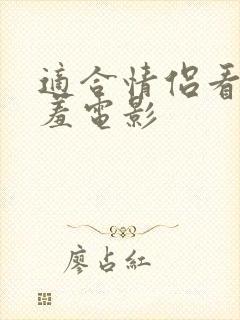 適合情侶看
羞電影
廖占紅